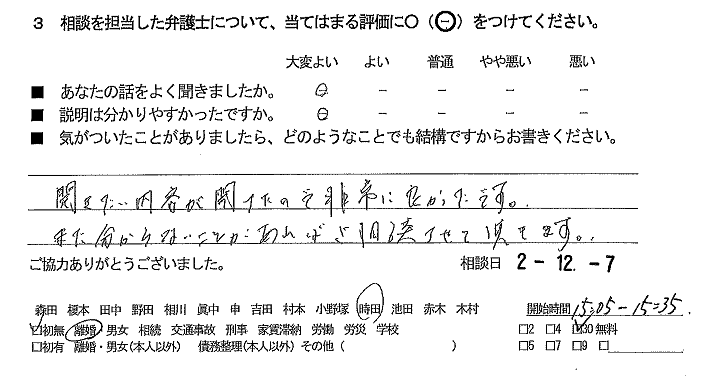 3 相談を担当した弁護士について、当てはまる評価に○（㊀）をつけてください。
大変よい よい 普通 やや悪い 悪い
■ あなたの話をよく聞きましたか。 ㊀ － － － －
■ 説明は分かりやすかったですか。 ㊀ － － － －
■ 気がついたことがありましたら、どのようなことでも結構ですからお書きください。
聞きたい内容が聞けたので非常に良かったです。
また分からないことがあればご相談させて頂きます。
ご協力ありがとうございました。 相談日 2-12.-7
森田 榎本 田中 野田 相川 眞中 申 吉田 村本 小野塚 時田 池田 赤木 木村 開始時間 15:05-15:35
☑初無 離婚・男女 相続 交通事故 刑事 家賃滞納 労働 労災 学校 □2 □4 ☑30 無料
□初有 離婚・男女(本人以外) 債務整理(本人以外) その他 ( ) □5 □7 □9 □